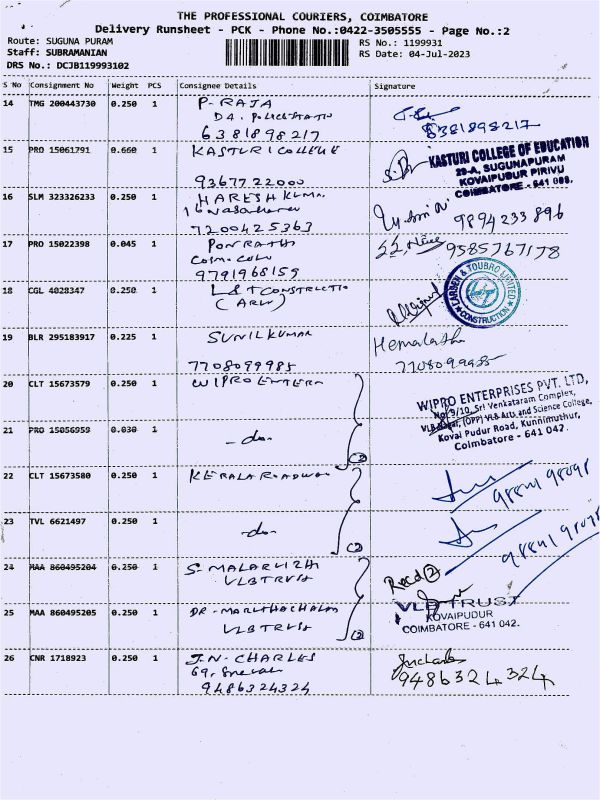 THE PROFESSIONAL COURIERS, COIMBATORE
Delivery Runsheet - PCK - Phone No.:0422-3505555 - Page No.:2
Route: SUGUNA PURAM RS No.: 1199931
Staff: SUBRAMANIAN RS Date: 04-Jul-2023
DRS No.: DCJB119993102
S No Consignment No Weight PCS Consignee Details Signature
14 TMG 200443730 0.250 1 P-RAJA
6381898217 8381898217
15 PRO 15061791 0.660 1 KASTURI COLLEGE KASTURI COLLEGE OF EDUCATION
29-A, SUGUNAPURAM
KOVAIPUDUR PIRIVU
9367722000 COIMBATORE - 641 008.
16 SLM 323326233 0.250 1 HARESH KUMA
9894233896
7200425363
17 PRO 15022398 0.045 1 9585767178
9791968159
18 CGL 4028347 0.250 1 L&T CONSTRUCTIO LARSEN & TOUBRO LIMITED
CONSTRUCTION
19 BLR 295183917 0.225 1 SUNILKUMAR Hemalatha
7708099985 7708099985
20 CLT 15673579 0.250 1 WIPRO WIPRO ENTERPRISES PVT. LTD,
No. 9/10, Sri Venkataram Complex,
VLB Nagar, (OPP) VLB Arts and Science College,
Kovai Pudur Road, Kunnimuthur,
Coimbatore - 641 042.
21 PRO 15056959 0.030 1 -do-
(2)
22 CLT 15673580 0.250 1 KERALA ROADWAY
23 TVL 6621497 0.250 1 -do-
(2)
24 MAA 860495204 0.250 1 S-MALARVIZHI Recd (2)
VLB TRUST
25 MAA 860495205 0.250 1 DR-MARUTHACHALAM VLB TRUST
KOVAIPUDUR
VLB TRUST (2) COIMBATORE - 641 042.
26 CNR 1718923 0.250 1 J.N-CHARLES Jncharles
9486324324 9486324324